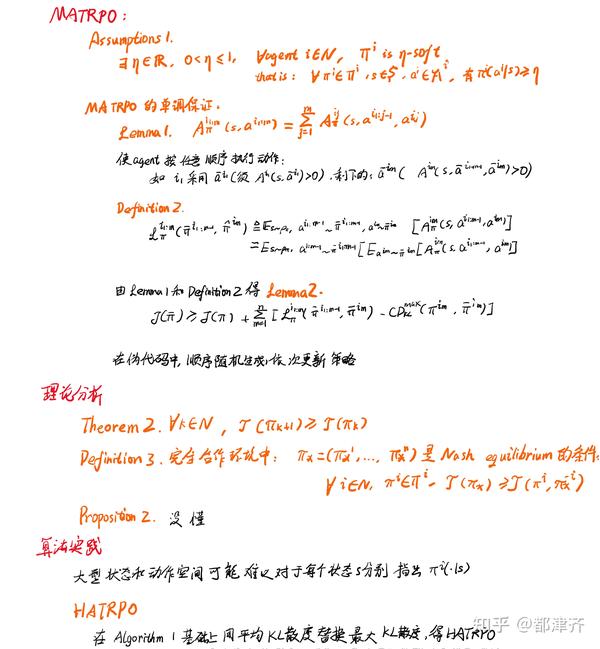 MATRPO:
Assumptions 1.
∃ η∈ℝ, 0<η≤1, ∀agent i∈N, πⁱ is η-soft
that is: ∀ πⁱ∈Πⁱ, s∈S, aⁱ∈Aⁱ, 有 πⁱ(aⁱ|s)≥η
MATRPO 的单调保证.
Lemma 1. A_π^{i₁:m}(s,a^{i₁:m}) = Σ_{j=1}^{m} A_π^{ij}(s,a^{i₁:j-1},a^{ij})
使agent按任意顺序执行动作:
如 i₁ 采用 ā^{i₁}(须 A^{i₁}(s,ā^{i₁})>0) 剩下的: ā^{im}( A^{im}(s,ā^{i₁:m-1},ā^{im})>0)
Definition 2.
L_π^{i₁:m}(π̄^{i₁:m-1}, π̂^{im}) ≜ E_{s~ρπ, a^{i₁:m-1}~π̄^{i₁:m-1}, a^{im}~π̂^{im}} [A_π^{im}(s,a^{i₁:m-1},a^{im})]
=E_{s~ρπ, a^{i₁:m-1}~π̄^{i₁:m-1}}[E_{a^{im}~π̂^{im}}[A_π^{im}(s,a^{i₁:m-1},a^{im})]
由Lemma 1和Definition 2得 Lemma 2.
J(π̄) ≥ J(π) + Σ_{m=1}^{n} [L_π^{i₁:m}(π̄^{i₁:m-1}, π̄^{im}) - CD_{KL}^{max}(π^{im}, π̄^{im})]
在伪代码中, 顺序随机生成, 依次更新策略
理论分析
Theorem 2. ∀k∈N, J(π_{k+1}) ≥ J(π_k)
Definition 3. 完全合作环境中: π_*=(π_*¹,..., π_*ⁿ) 是 Nash equilibrium 的条件
∀ i∈N, πⁱ∈Πⁱ, J(π_*) ≥J(πⁱ, π_*^{-i})
Proposition 2. 没懂
算法实践
大型状态和动作空间可能难以对于每个状态s分别指出 πⁱ(·|s)
HATRPO
在 Algorithm 1 基础上用平均KL散度替换最大KL散度, 得HATRPO
知乎 @都津齐